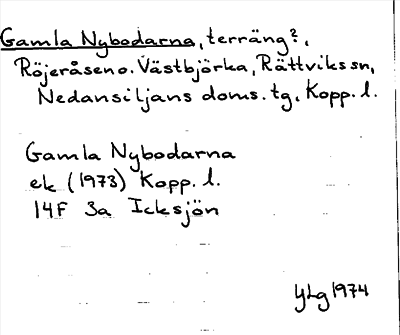 Gamla Nybodarna, terräng?,
Röjeråsen o. Västbjörka, Rättviks sn,
Nedansiljans doms. tg. Kopp. l.
Gamla Nybodarna
ek (1973) Kopp. l.
14F 3a Icksjön
YLg 1974